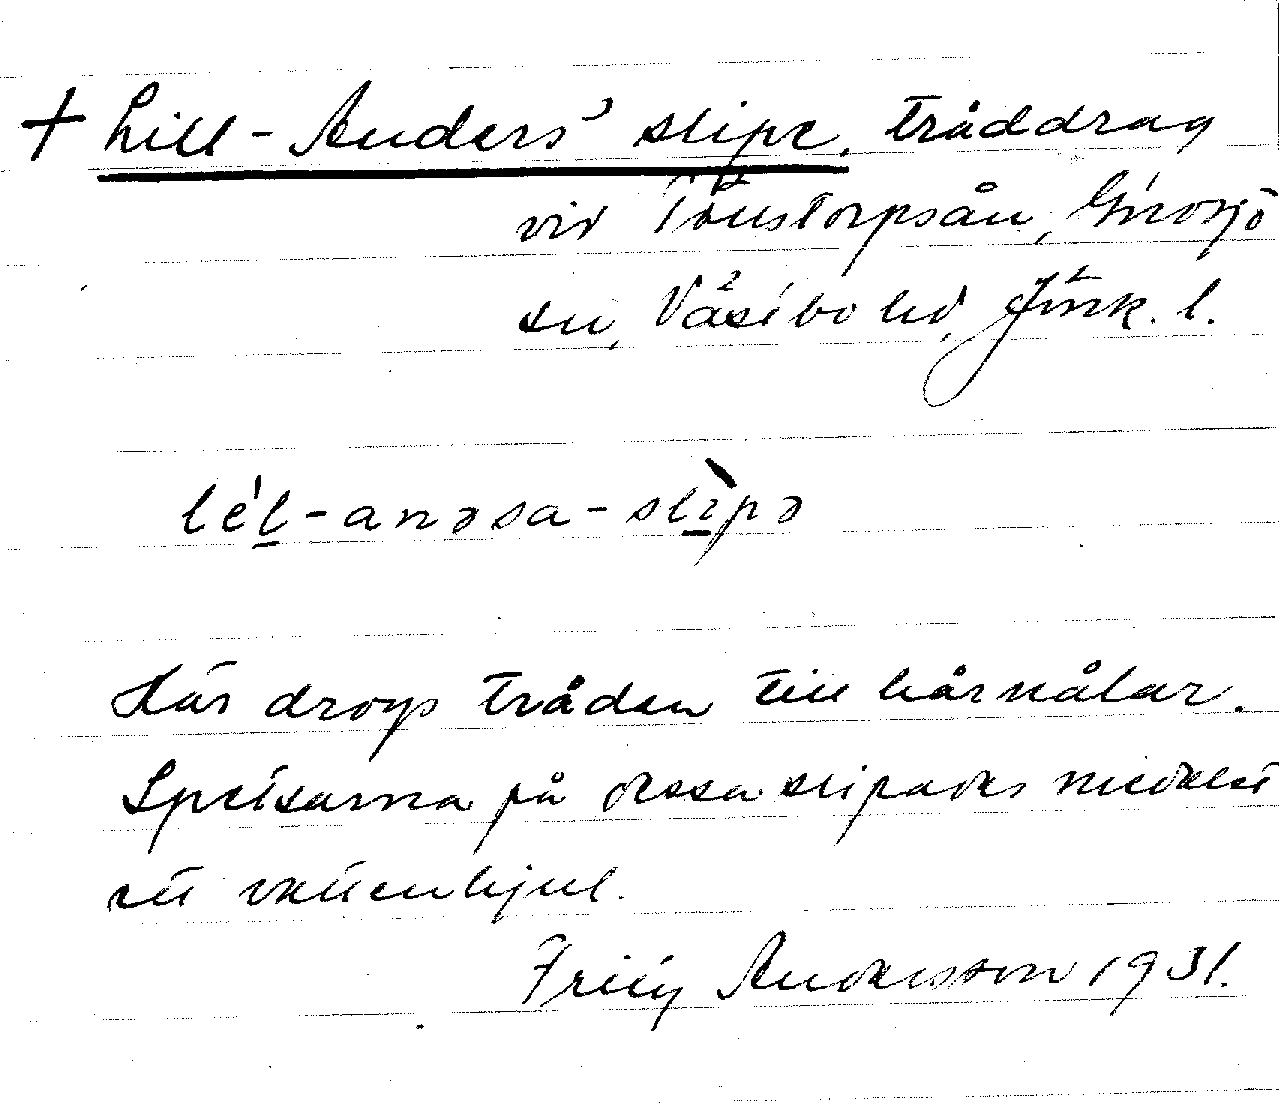 + Lill-Anders' slipe, tråddrag
vid Töustorpsån, Gnosjö
sn, Västbo hd, Jönk. l.
lé̍l̠-anəsa-slì̠pə
Här drogs tråden till hårnålar.
Spetsarna på dessa slipades medelst
ett vattenhjul.
Fritz Andersson 1931.